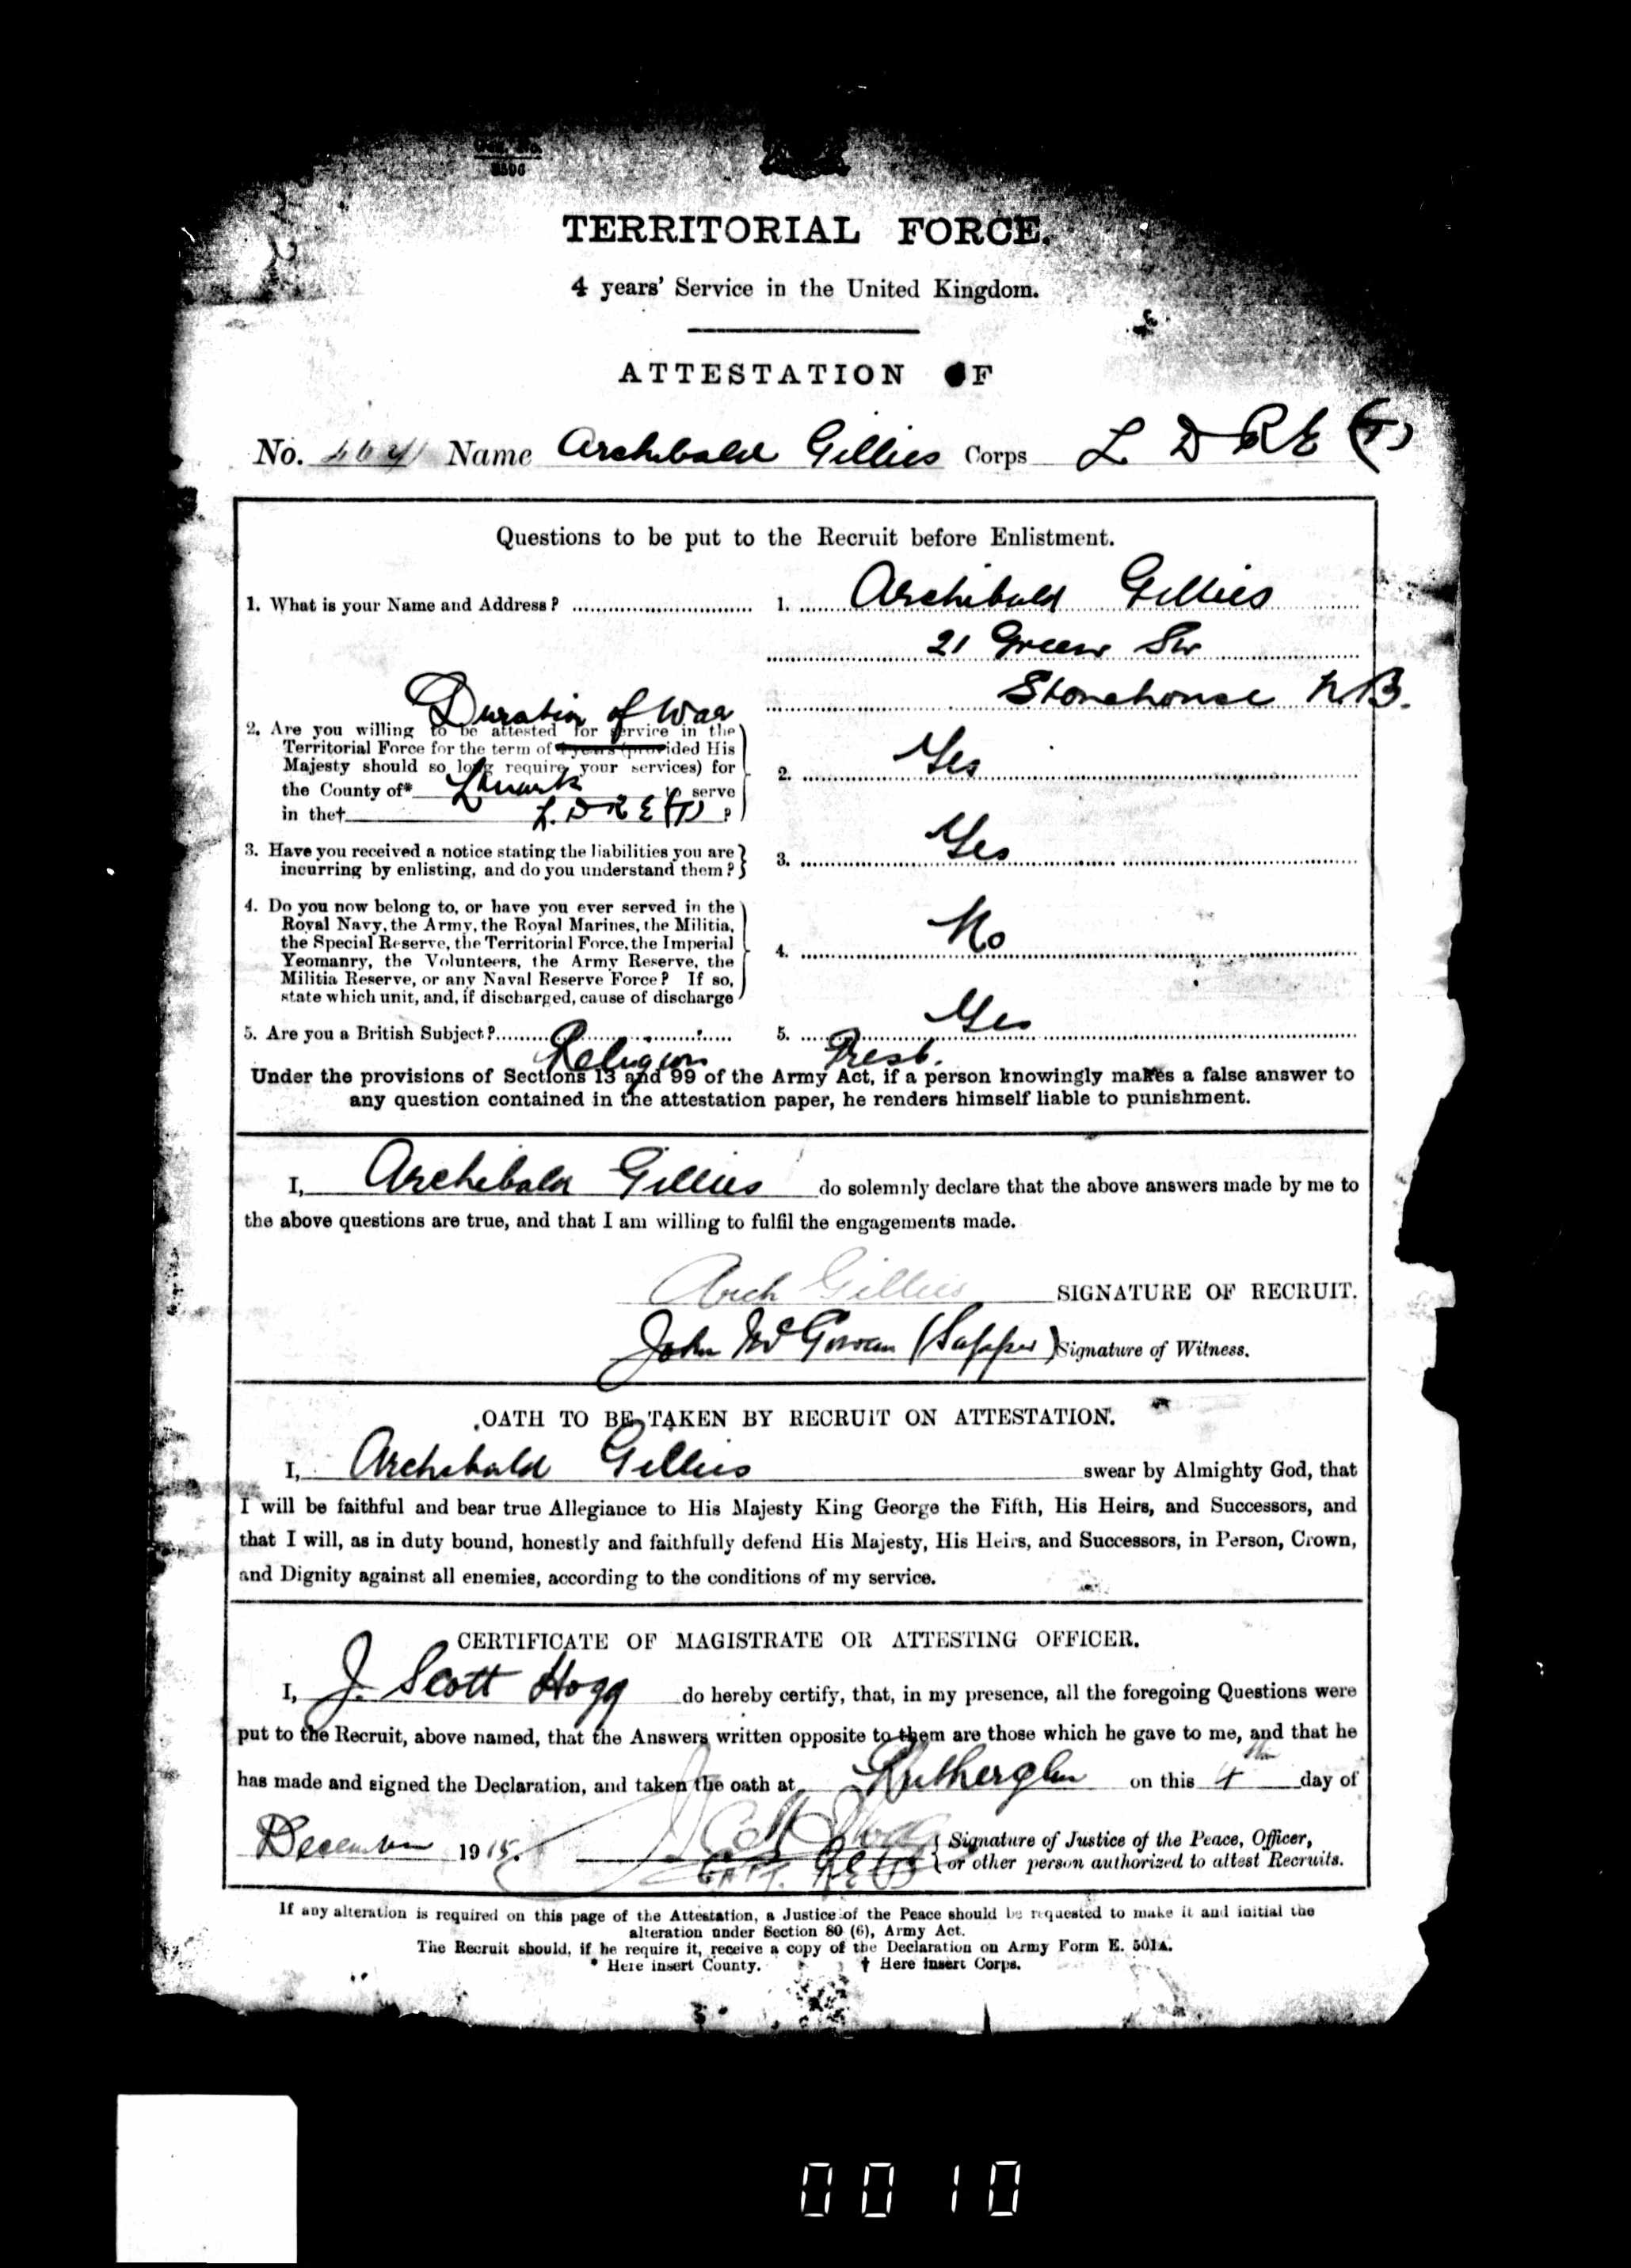 TERRITORIAL FORCE.
4 years' Service in the United Kingdom.
ATTESTATION OF
No. Name Archibald Gillies Corps L D R E (T)
Questions to be put to the Recruit before Enlistment.
1. What is your Name and Address? 1. Archibald Gillies
21 Green
Stonehouse N.B.
Duration of War
2. Are you willing to be attested for service in the
Territorial Force for the term of 4 years (provided His
Majesty should so long require your services) for 2. Yes
the County of* Lanark to serve
in the† L. D R E (T) ?
3. Have you received a notice stating the liabilities you are 3. Yes
incurring by enlisting, and do you understand them?
4. Do you now belong to, or have you ever served in the
Royal Navy, the Army, the Royal Marines, the Militia,
the Special Reserve, the Territorial Force, the Imperial 4. No
Yeomanry, the Volunteers, the Army Reserve, the
Militia Reserve, or any Naval Reserve Force? If so,
state which unit, and, if discharged, cause of discharge
5. Are you a British Subject? 5. Yes
Religion Presb.
Under the provisions of Sections 13 and 99 of the Army Act, if a person knowingly makes a false answer to
any question contained in the attestation paper, he renders himself liable to punishment.
I, Archibald Gillies do solemnly declare that the above answers made by me to
the above questions are true, and that I am willing to fulfil the engagements made.
Arch Gillies SIGNATURE OF RECRUIT.
John McGowan (Sapper) Signature of Witness.
OATH TO BE TAKEN BY RECRUIT ON ATTESTATION.
I, Archibald Gillies swear by Almighty God, that
I will be faithful and bear true Allegiance to His Majesty King George the Fifth, His Heirs, and Successors, and
that I will, as in duty bound, honestly and faithfully defend His Majesty, His Heirs, and Successors, in Person, Crown,
and Dignity against all enemies, according to the conditions of my service.
CERTIFICATE OF MAGISTRATE OR ATTESTING OFFICER.
I, J. Scott Hogg do hereby certify, that, in my presence, all the foregoing Questions were
put to the Recruit, above named, that the Answers written opposite to them are those which he gave to me, and that he
has made and signed the Declaration, and taken the oath at Rutherglen on this 4th day of
December 1915. J Scott Hogg Signature of Justice of the Peace, Officer,
CAPT. RE (T) or other person authorized to attest Recruits.
If any alteration is required on this page of the Attestation, a Justice of the Peace should be requested to make it and initial the
alteration under Section 80 (6), Army Act.
The Recruit should, if he require it, receive a copy of the Declaration on Army Form E. 501A.
* Here insert County. † Here insert Corps.
0010